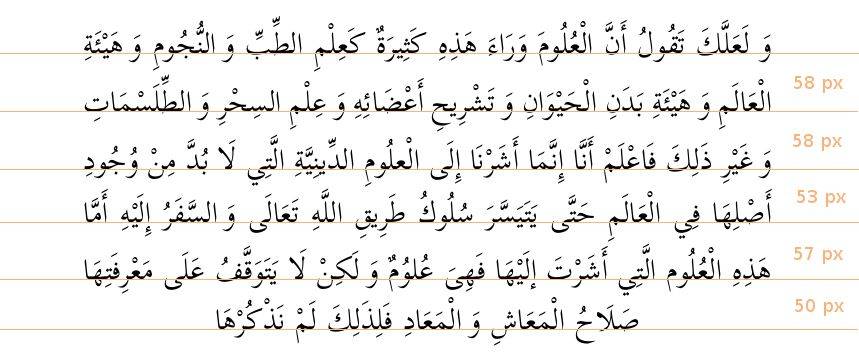 وَ لَعَلَّكَ تَقُولُ أَنَّ الْعُلُومَ وَرَاءَ هَذِهِ كَثِيرَةٌ كَعِلْمِ الطِّبِّ وَ النُّجُومِ وَ هَيْئَةِ
الْعَالَمِ وَ هَيْئَةِ بَدَنِ الْحَيْوَانِ وَ تَشْرِيحِ أَعْضَائِهِ وَ عِلْمِ السِحْرِ وَ الطِّلَسْمَاتِ
58 px
وَ غَيْرِ ذَلِكَ فَاعْلَمْ أَنَّا إِنَّمَا أَشَرْنَا إِلَى الْعلُومِ الدِّينِيَّةِ الَّتِي لَا بُدَّ مِنْ وُجُودِ
58 px
أَصْلِهَا فِي الْعَالَمِ حَتَّى يَتَيَسَّرَ سُلُوكُ طَرِيقِ اللَّهِ تَعَالَى وَ السَّفَرُ إِلَيْهِ أَمَّا
53 px
هَذِهِ الْعُلُوم الَّتِي أَشَرْتَ إلَيْهَا فَهِىَ عُلوُمٌ وَ لَكِنْ لَا يَتَوَقَّفُ عَلَى مَعْرِفَتِهَا
57 px
صَلَاحُ الْمَعَاشِ وَ الْمَعَادِ فَلِذَلِكَ لَمْ نَذْكُرْهَا
50 px